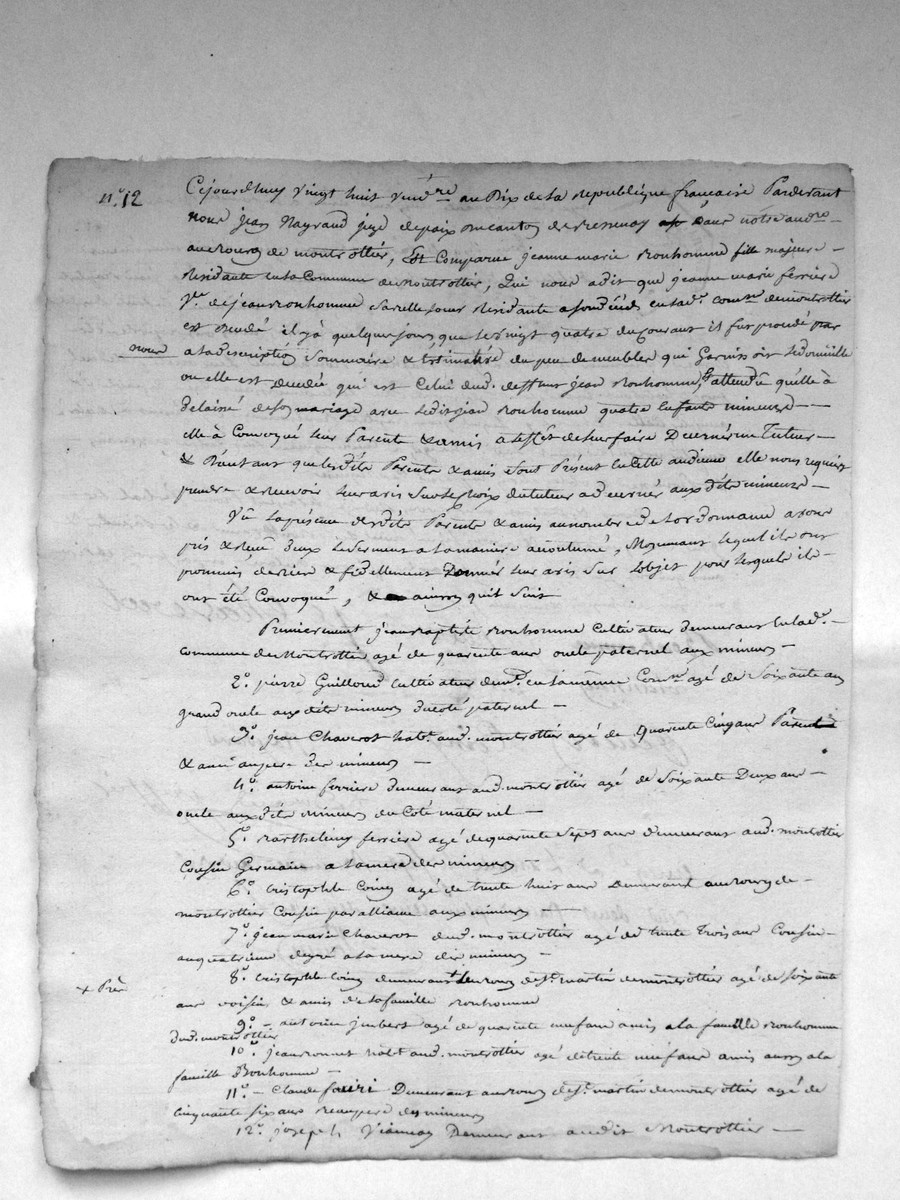 n.° 12
Cejourdhuy vingt huit vend.re an Dix de la republique francaise Pardevant
nous jean Nayraud juge de paix du canton de Bessenay dans notre audre
au bourg de montrottier, Est Comparue jeanne marie Bonhomme fille majeure
Residante en la Commune de Montrottier, Qui nous a dit que jeanne marie ferriere
V.e de jean Bonhomme sa belle soeur Residante en lad. com.e de montrottier
est decedé il y à quelques jours que le vingt quatre du courant il fut procedé par
nous
a la discription Sommaire & Estimative du peu de meubles qui Garnissoit le domicille
ou elle est decedée qui est Celui dud. deffunt jean Bonhomme, & attendû qu'elle à
delaissé de son mariage avec ledit jean Bonhomme quatre Enfants mineurs
elle à Convoqué leur Parents & amis a l'effet de leur faire Decerner un Tuteur
& D'autant que lesdits Parents & amis sont Présent en cette audience elle nous requiert
prendre & recevoir leur avis sur le choix du tuteur a decerner aux dits mineurs
Vû la présence desdits Parents & amis au nombre de l'ordonnance avons
pris & reçû d'eux le serment a la maniere acoutumé, Moyennant lequel ils ont
promis de bien & fidellement Donner leur avis sur l'objet pour lequel ils
ont été Convoqué, & ainsy qu'il suit
Premierement jean Baptiste Bonhomme Cultivateur demeurant en lad.
commune de Montrottier agé de quarente ans oncle paternel aux mineurs
2.° pierre Guilloud cultivateur dem.t en la même Com.e agé de Soixante ans
grand oncle aux dits mineurs du coté paternel
3.° jean Chaverot habt. aud. montrottier agé de Quarente Cinq ans Parent
& ami au pere des mineurs
4.° antoine ferriere demeurant aud. montrottier agé de Soixante Deux ans
oncle aux dits mineurs du Coté maternel
5.° Barthelemy ferriere agé de quarente Sept ans demeurant aud. montrottier
Cousin Germain a la mere des mineurs
6.° Cristophle Coing agé de trente huit ans Demeurant au bourg de
montrottier Cousin par alliance aux mineurs
7.° jean marie Chaverot dud. montrottier agé de trente Trois ans Cousin
au quatrieme degré a la mere des mineurs
+ Pere
8.° Cristophle Coing + demeurant au bourg de St. martin de montrottier agé de soixante
ans voisin & amis de la famille Bonhomme
9.° antoine jmbert agé de quarente neuf ans amis a la famille Bonhomme
dud. montrottier
10.° jean Bonnet habt. aud. montrottier agé de trente neuf ans amis aussy a la
famille Bonhomme
11.° Claude Demeurant au bourg de St. martin de montrottier agé de
Cinquante six ans beaupere des mineurs
12.° joseph Vianney Demeurant audit Montrottier